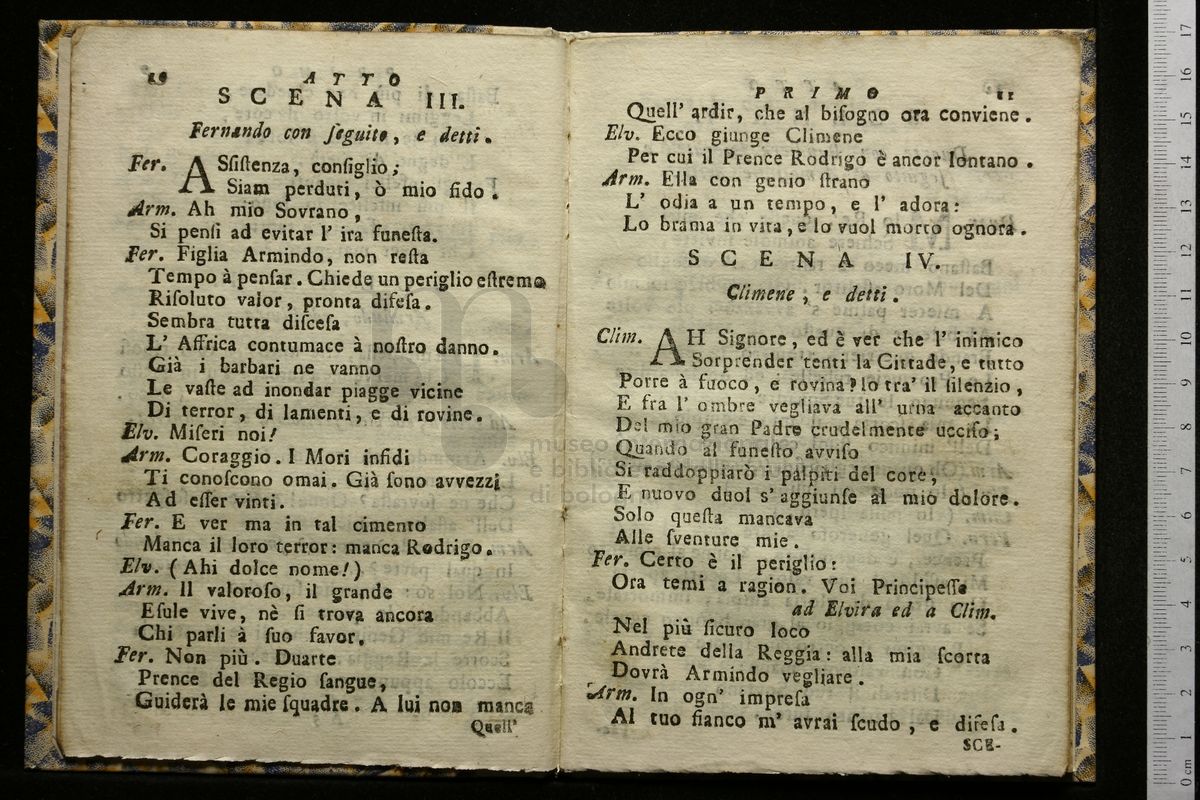 10 ATTO
SCENA III.
Fernando con ſeguito, e detti.
Fer. ASſiſtenza, conſiglio;
Siam perduti, ò mio fido!
Arm. Ah mio Sovrano,
Si penſi ad evitar l' ira funeſta.
Fer. Figlia Armindo, non reſta
Tempo à penſar. Chiede un periglio eſtremo
Riſoluto valor, pronta difeſa.
Sembra tutta diſceſa
L' Affrica contumace à noſtro danno.
Già i barbari ne vanno
Le vaſte ad inondar piagge vicine
Di terror, di lamenti, e di rovine.
Elv. Miſeri noi!
Arm. Coraggio. I Mori infidi
Ti conoſcono omai. Già ſono avvezzi
Ad eſſer vinti.
Fer. E ver ma in tal cimento
Manca il loro terror: manca Rodrigo.
Elv. (Ahi dolce nome!)
Arm. Il valoroſo, il grande
Eſule vive, nè ſi trova ancora
Chi parli à ſuo favor.
Fer. Non più. Duarte
Prence del Regio ſangue,
Guiderà le mie ſquadre. A lui non manca
Quell'
PRIMO 11
Quell' ardir, che al biſogno ora conviene.
Elv. Ecco giunge Climene
Per cui il Prence Rodrigo è ancor lontano.
Arm. Ella con genio ſtrano
L' odia a un tempo, e l' adora:
Lo brama in vita, e lo vuol morto ognora.
SCENA IV.
Climene, e detti.
Clim. AH Signore, ed è ver che l' inimico
Sorprender tenti la Cittade, e tutto
Porre à fuoco, e rovina? Io tra' il ſilenzio,
E fra l' ombre vegliava all' urna accanto
Del mio gran Padre crudelmente ucciſo;
Quando al funeſto avviſo
Si raddoppiarò i palpiti del core,
E nuovo duol s' aggiunſe al mio dolore.
Solo queſta mancava
Alle ſventure mie.
Fer. Certo è il periglio:
Ora temi a ragion. Voi Principeſſe
ad Elvira ed a Clim.
Nel più ſicuro loco
Andrete della Reggia: alla mia ſcorta
Dovrà Armindo vegliare.
Arm. In ogn' impreſa
Al tuo fianco m' avrai ſcudo, e difeſa.
SCE-